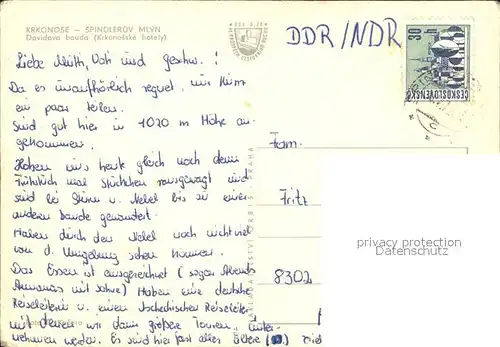 KRKONOŠE — ŠPINDLERŮV MLÝN
Davidova bouda (Krkonošské hotely)
DDR/NDR
30
ČESKOSLOVENSKO
Liebe Mutti, Vati und geschw.!
Da es unaufhörlich regnet, nur Ihnen
ein paar Zeilen.
Sind gut hier in 1020 m Höhe an-
gekommen.
Haben uns heute gleich nach dem
Frühstück mal Stückchen rausgewagt und
sind bei Sturm u. Nebel bis zu einer
anderen Baude gewandert.
Haben durch den Nebel noch nicht viel
von d. Umgebung sehen können.
Das Essen ist ausgezeichnet (sogar Abends
Ananas mit Sahne) Haben eine deutsche
Reiseleiterin u. einen tschechischen Reiseleiter
mit denen wir dann größere Touren unter-
nehmen werden. Es sind hier fast alles ältere
Fam.
Fritz
8302
privacy protection
www.ansichtskarten-lexikon.de